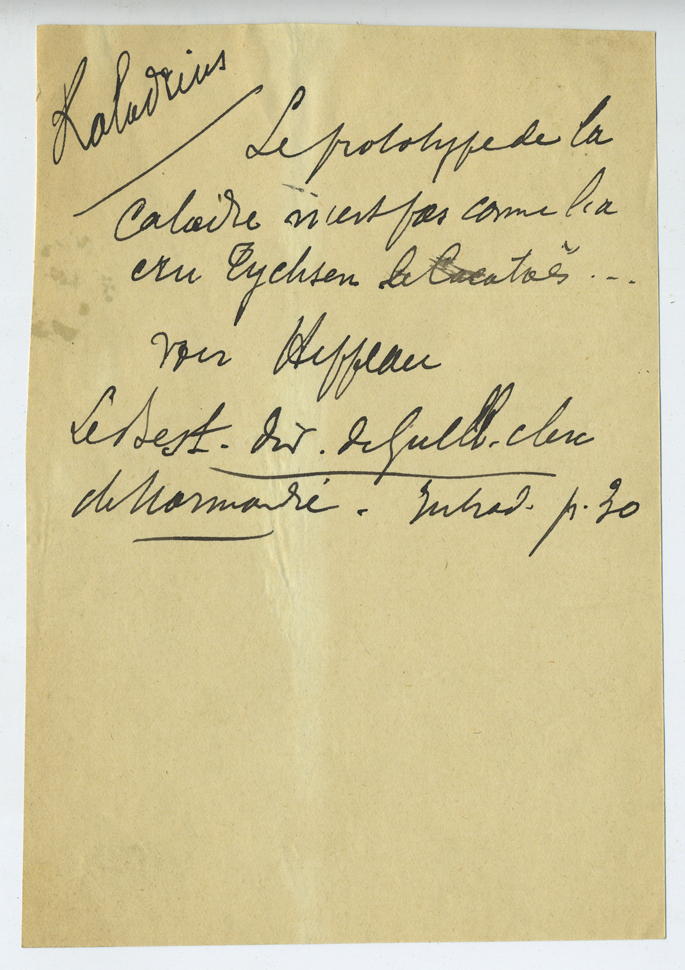 Kaladrius
Le prototype de la
caladre n'est pas comme l'a
cru Tychsen le Cacatoës ...
voir Hippeau
Le Best. div. de Guill. clerc
de Normandie. Introd. p. 30